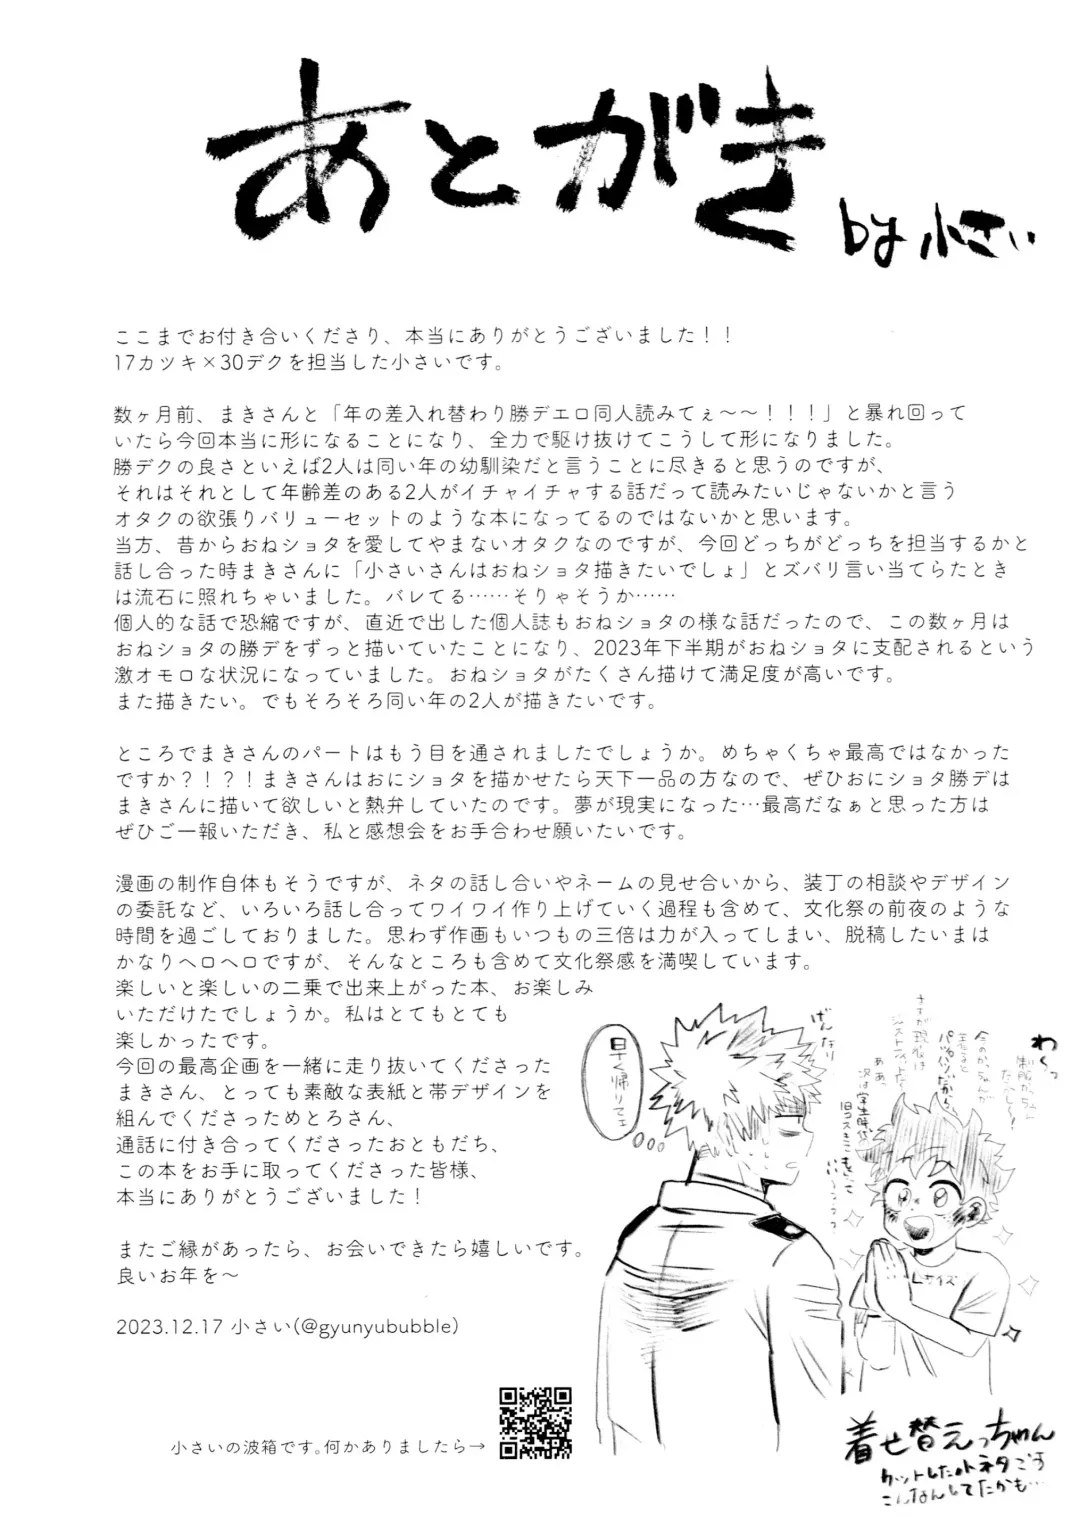 あとがき
by 小さい
ここまでお付き合いくださり、本当にありがとうございました！！
17カツキ×30デクを担当した小さいです。
数ヶ月前、まきさんと「年の差入れ替わり勝デエロ同人読みてぇ～～！！！」と暴れ回って
いたら今回本当に形になることになり、全力で駆け抜けてこうして形になりました。
勝デクの良さといえば2人は同い年の幼馴染だと言うことに尽きると思うのですが、
それはそれとして年齢差のある2人がイチャイチャする話だって読みたいじゃないかと言う
オタクの欲張りバリューセットのような本になってるのではないかと思います。
当方、昔からおねショタを愛してやまないオタクなのですが、今回どっちがどっちを担当するかと
話し合った時まきさんに「小さいさんはおねショタ描きたいでしょ」とズバリ言い当てらたとき
は流石に照れちゃいました。バレてる……そりゃそうか……
個人的な話で恐縮ですが、直近で出した個人誌もおねショタの様な話だったので、この数ヶ月は
おねショタの勝デをずっと描いていたことになり、2023年下半期がおねショタに支配されるという
激オモロな状況になっていました。おねショタがたくさん描けて満足度が高いです。
また描きたい。でもそろそろ同い年の2人が描きたいです。
ところでまきさんのパートはもう目を通されましたでしょうか。めちゃくちゃ最高ではなかった
ですか？！？！まきさんはおにショタを描かせたら天下一品の方なので、ぜひおにショタ勝デは
まきさんに描いて欲しいと熱弁していたのです。夢が現実になった…最高だなぁと思った方は
ぜひご一報いただき、私と感想会をお手合わせ願いたいです。
漫画の制作自体もそうですが、ネタの話し合いやネームの見せ合いから、装丁の相談やデザイン
の委託など、いろいろ話し合ってワイワイ作り上げていく過程も含めて、文化祭の前夜のような
時間を過ごしておりました。思わず作画もいつもの三倍は力が入ってしまい、脱稿したいまは
かなりヘロヘロですが、そんなところも含めて文化祭感を満喫しています。
楽しいと楽しいの二乗で出来上がった本、お楽しみ
いただけたでしょうか。私はとてもとても
楽しかったです。
今回の最高企画を一緒に走り抜いてくださった
まきさん、とっても素敵な表紙と帯デザインを
組んでくださっためとろさん、
通話に付き合ってくださったおともだち、
この本をお手に取ってくださった皆様、
本当にありがとうございました！
またご縁があったら、お会いできたら嬉しいです。
良いお年を～
2023.12.17 小さい(@gyunyububble)
小さいの波箱です。何かありましたら→
早く帰りてェ
げんなり
わ～っ
今のかっちゃんが
着ると
パツパツだから
ああ、
次は学生時代の
旧コスもきて
Lサイズ
着せ替えっちゃん
カットした小ネタです
こんなんしてたかも…